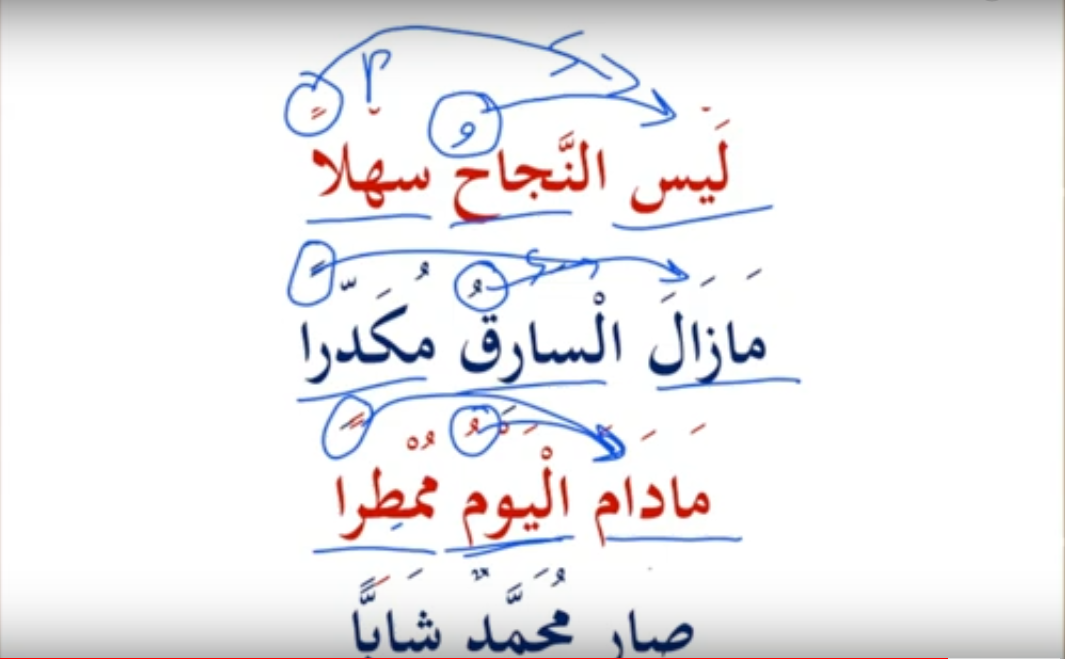 لَيس النَّجاحُ سهلاً
مَازَالَ الْسارقُ مُكَدّراً
مَادَامَ الْيَوْمُ مُمْطِراً
صار مُحَمَّدٌ شَابًّا